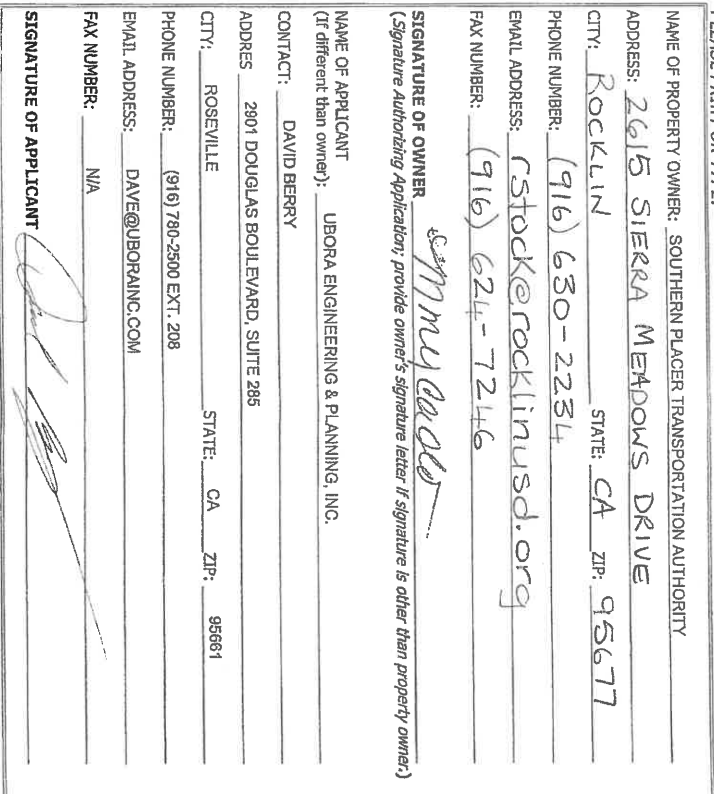 NAME OF PROPERTY OWNER: SOUTHERN PLACER TRANSPORTATION AUTHORITY
ADDRESS: 2615 SIERRA MEADOWS DRIVE
CITY: ROCKLIN STATE: CA ZIP: 95677
PHONE NUMBER: (916) 630-2234
EMAIL ADDRESS: rstock@rocklinusd.org
FAX NUMBER: (916) 624-7246
SIGNATURE OF OWNER
(Signature Authorizing Application; provide owner's signature letter if signature is other than property owner.)
NAME OF APPLICANT
(If different than owner): UBORA ENGINEERING & PLANNING, INC.
CONTACT: DAVID BERRY
ADDRES 2901 DOUGLAS BOULEVARD, SUITE 285
CITY: ROSEVILLE STATE: CA ZIP: 95661
PHONE NUMBER: (916) 780-2500 EXT. 208
EMAIL ADDRESS: DAVE@UBORAINC.COM
FAX NUMBER: N/A
SIGNATURE OF APPLICANT